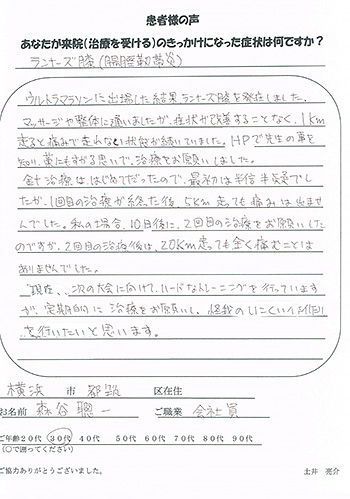 患者様の声
あなたが来院(治療を受ける)のきっかけになった症状は何ですか?
ランナーズ膝(腸脛靭帯炎)
ウルトラマラソンに出場した結果ランナーズ膝を発症しました。
マッサージや整体に通いましたが、症状が改善することなく、1km
走ると痛みで走れない状態が続いていました。HPで先生の事を
知り、藁にもすがる思いで、治療をお願いしました。
針治療は、はじめてだったので、最初は半信半疑でし
たが、1回目の治療が終った後、5km走っても痛みは出ませ
んでした。私の場合、10日後に、2回目の治療をお願いした
のですが、2回目の治療後は、20km走っても全く痛むことは
ありませんでした。
現在、次の大会に向けて、ハードなトレーニングを行っています
が、定期的に治療をお願いし、怪我のしにくい
を行いたいと思います。
横浜 市 都筑 区在住
お名前 森谷 聡一 ご職業 会社員
ご年齢20代 30代 40代 50代 60代 70代 80代 90代
(○で囲ってください)
ご協力ありがとうございました。 土井 亮介